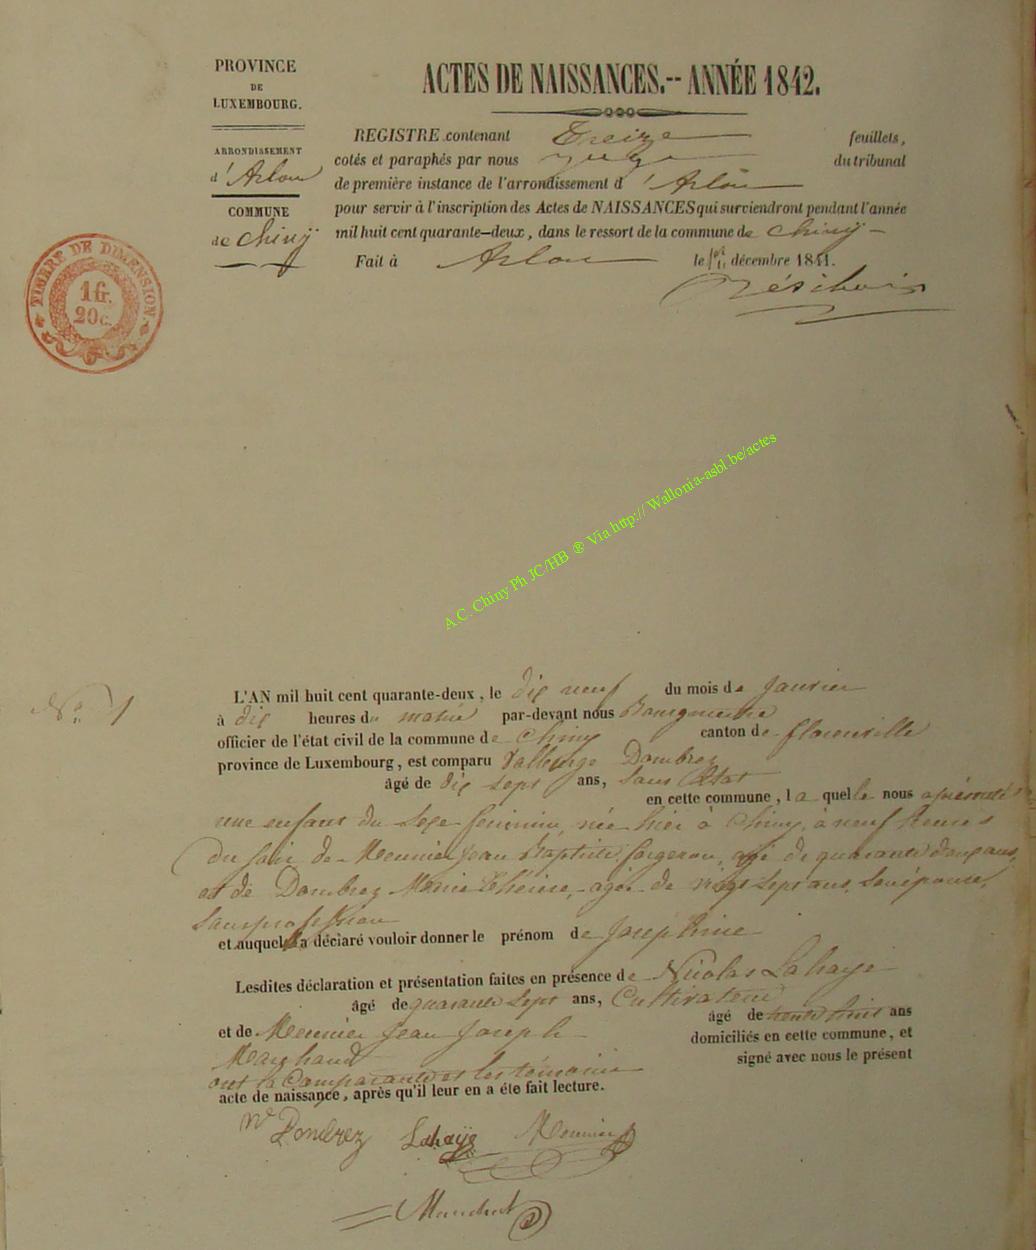 PROVINCE
DE
LUXEMBOURG.
ARRONDISSEMENT
d'Arlon
COMMUNE
de Chiny
TIMBRE DE DIMENSION.
1 fr.
20 c.
ACTES DE NAISSANCES.-- ANNÉE 1842.
REGISTRE contenant Treize feuillets,
cotés et paraphés par nous juge du tribunal
de première instance de l'arrondissement d'Arlon
pour servir à l'inscription des Actes de NAISSANCES qui surviendront pendant l'année
mil huit cent quarante-deux, dans le ressort de la commune de Chiny
Fait à Arlon le décembre 1841.
A.C. Chiny Ph JC/HB ® Via http:// Wallonia-asbl.be/actes
N° 1
L'AN mil huit cent quarante-deux, le dix neuf du mois de Janvier
à dix heures du matin par-devant nous Bourgmestre
officier de l'état civil de la commune de Chiny canton de florenville
province de Luxembourg, est comparu Dombrez
âgé de dix sept ans, sans état
en cette commune, la quelle nous a présenté
une enfant du sexe feminin, née hier à Chiny, à neuf heures
du soir de Meunier Jean Baptiste forgeron, agé de quarante douze ans,
et de Dombrez Marie Thérèse, agée de vingt sept ans, son épouse,
sans profession
et auquel a déclaré vouloir donner le prénom de Josephine
Lesdites déclaration et présentation faites en présence de Nicolas Lahaye
âgé de quarante sept ans, Cultivateur
et de Meunier Jean Joseph âgé de trente huit ans
Marchand domiciliés en cette commune, et
ont la Comparante et les témoins signé avec nous le présent
acte de naissance, après qu'il leur en a été fait lecture.
Dombrez Lahaye Meunier